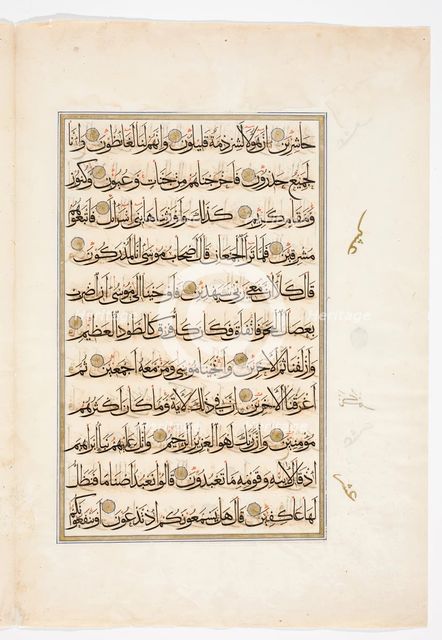 حاشرين ان هؤلاء لشرذمة قليلون وانهم لنا لغائظون وانا
لجميع حذرون فاخرجناهم من جنات وعيون وكنوز
ومقام كريم كذلك واورثناها بني اسرائل فاتبعوهم
مشرقين فلما ترا الجمعان قال اصحاب موسى انا لمدركون
قال كلا ان معي ربي سيهدين فاوحينا الى موسى ان اضرب
بعصاك البحر فانفلق فكان كل فرق كالطود العظيم
وازلفنا ثم الاخرين وانجينا موسى ومن معه اجمعين ثم
اغرقنا الاخرين ان في ذلك لاية وما كان اكثرهم
مؤمنين وان ربك لهو العزيز الرحيم واتل عليهم نبا ابراهيم
اذ قال لابيه وقومه ما تعبدون قالوا نعبد اصناما فنظل
لها عاكفين قال هل يسمعونكم اذ تدعون او ينفعونكم
عشر
Heritage